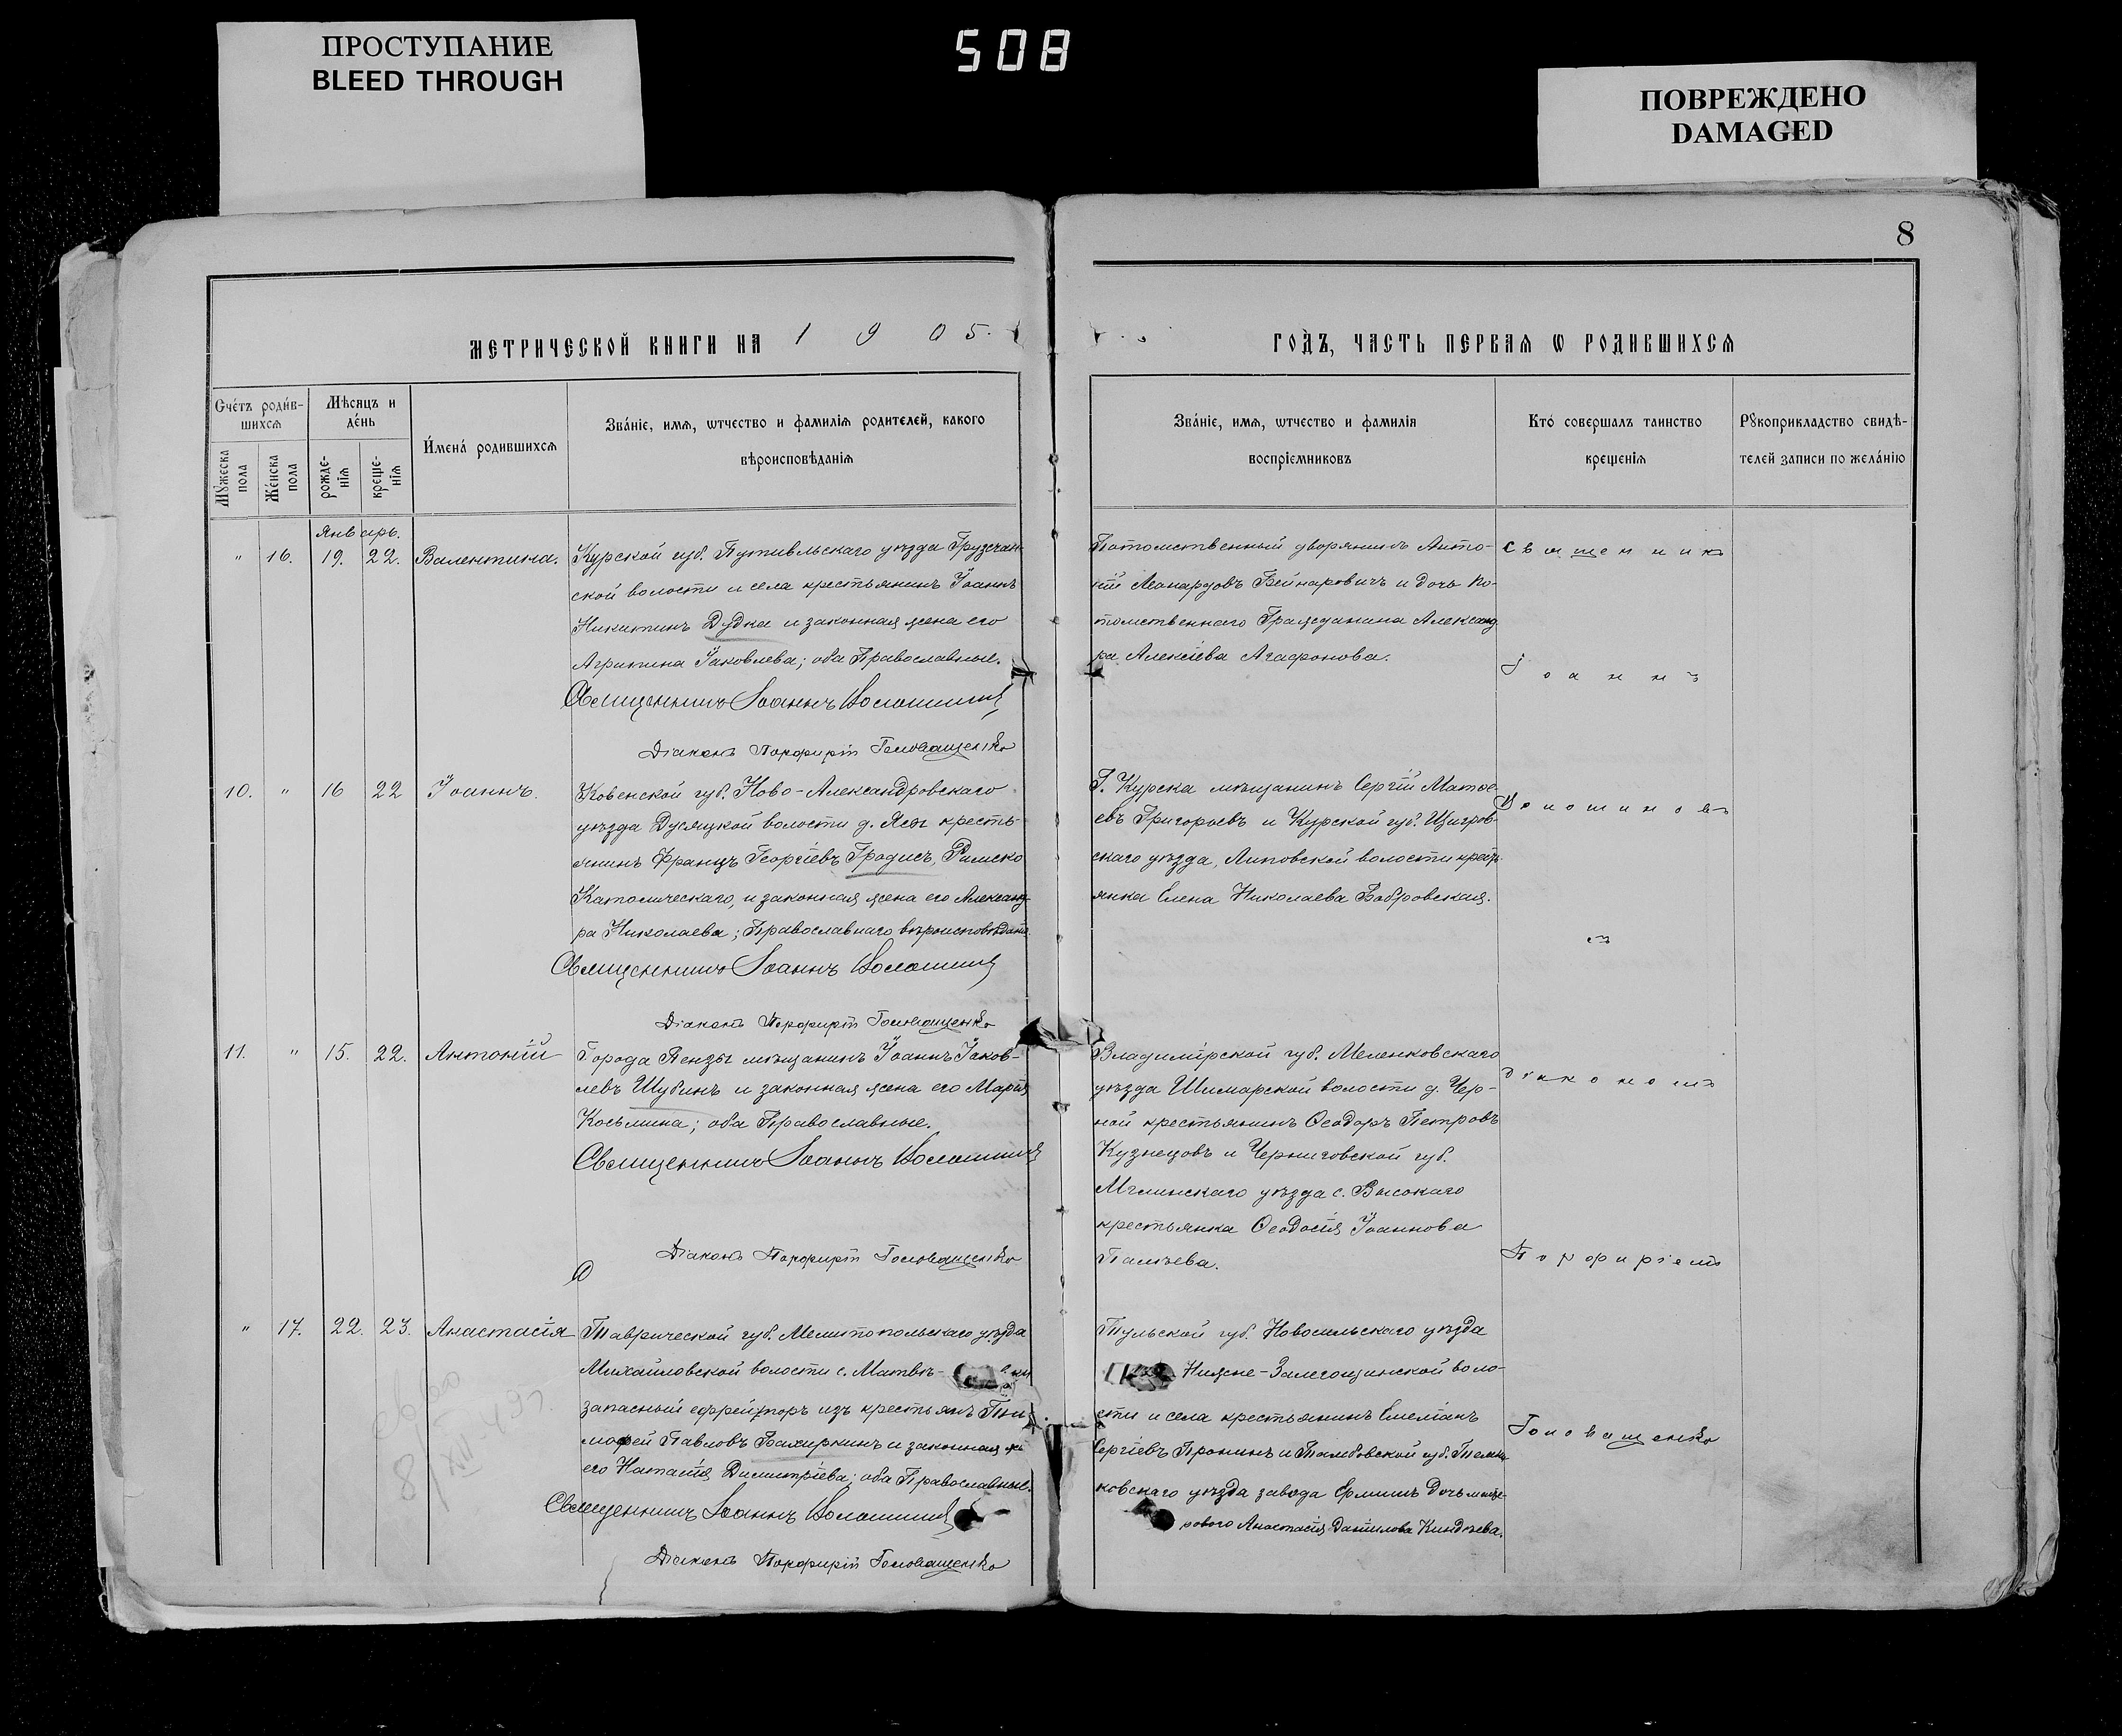 ПРОСТУПАНИЕ
BLEED THROUGH
508
ПОВРЕЖДЕНО
DAMAGED
8
МЕТРИЧЕСКОЙ КНИГИ НА 1905.
ГОДЪ, ЧАСТЬ ПЕРВАѦ Ѡ РОДИВШИХСѦ
Счétъ роди́в-
шихсѧ
Мꙋжеска пола
Же́нска пола
Мѣсяцъ и
де́нь
рожде-
нїѧ
креще-
нїѧ
И́мена́ родившихсѧ
Зва́нїе, имѧ, ѡтчество и фамилїѧ родителей, какого
вѣроисповѣданїѧ
Зва́нїе, имѧ, ѡтчество и фамилїѧ
воспрїемниковъ
Кто́ совершалъ таинство
крещенїѧ
Рꙋкоприкладство свидѣ-
телей записи по жела́нїю
Январь.
" 16. 19. 22. Валентина.
Курской губ. Путивльскаго уѣзда Грузчан-
ской волости и села крестьянинъ Іоаннъ
Никитинъ Дудка и законная жена его
Агрипина Іаковлева; оба Православные.
Священникъ Іоаннъ Волошиновъ
Діаконъ Порфирій Головащенко
Потомственный дворянинъ Анто-
ній Леонардовъ Бейнаровичъ и дочь по-
томственнаго Гражданина Александ
ра Алексіева Агафонова.
Священникъ
Іоаннъ
10. " 16 22 Іоаннъ.
Ковенской губ. Ново-Александровскаго
уѣзда Дусяцкой волости д. Ясы кресть-
янинъ Францъ Георгіевъ Гродисъ, Римско
Католическаго, и законная жена его Александ-
ра Николаева; Православнаго вѣроисповѣданія.
Священникъ Іоаннъ Волошиновъ
Діаконъ Порфирій Головащенко
Г. Курска мѣщанинъ Сергій Матѳе-
евъ Григорьевъ и Курской губ. Щигров-
скаго уѣзда, Липовской волости крестьянка
янка Елена Николаева Бобровская.
Волошиновъ
съ
11. " 15. 22. Антоній
Города Пензы мѣщанинъ Іоаннъ Іаков-
левъ Шубинъ и законная жена его Марія
Косьмина; оба Православные.
Священникъ Іоаннъ Волошиновъ
Діаконъ Порфирій Головащенко
Владимірской губ. Меленковскаго
уѣзда Шимарской волости д. Чер-
ной крестьянинъ Ѳеодоръ Петровъ
Кузнецовъ и Черниговской губ.
Мглинскаго уѣзда с. Высокаго
крестьянка Ѳеодосія Іоаннова
Палѣева.
діакономъ
Порфиріемъ
" 17. 22. 23. Анастасія
Таврической губ. Мелитопольскаго уѣзда
Михайловской волости с. Матвѣ-
запасный ефрейторъ изъ крестьянъ Ти-
мофей Павловъ Бахиркинъ и законная ж
его Наталія Димитріева; оба Православные.
Священникъ Іоаннъ Волошиновъ
Діаконъ Порфирій Головащенко
Тульской губ. Новосильскаго уѣзда
Нижне-Залегощинской воло-
сти и села крестьянинъ Емеліанъ
Сергіевъ Пронинъ и Тамбовской губ. Темни-
ковскаго уѣзда завода Ермишъ Дочь масте-
рового Анастасія Даніилова Киндѣева.
Головащенко